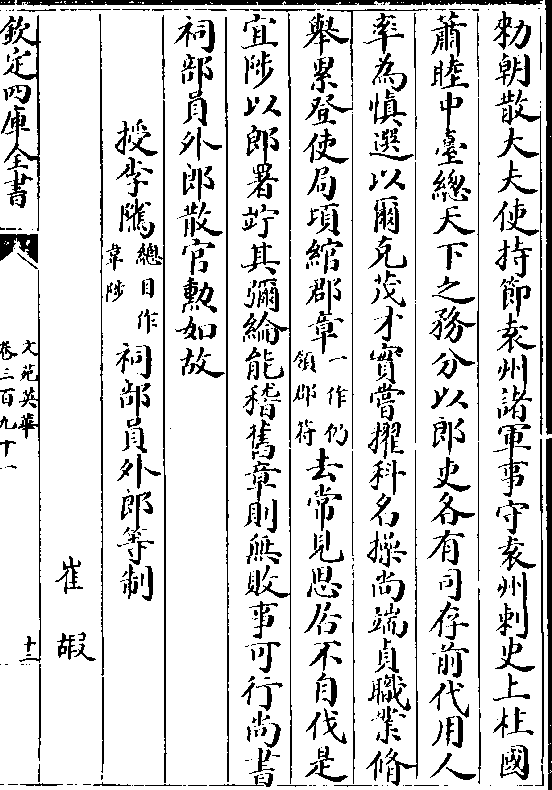 勅朝散大夫使持節袁州諸軍事守袁州刺史上柱國
蕭睦中臺總天下之務分以郎吏各有司存前代用人
率為慎選以爾克茂才實嘗擢科名操尚端貞職業脩
舉累登使局頃綰郡章一作仍領郡符去常見思居不自伐是
宜陟以郎署竚其彌綸能稽舊章則無敗事可行尚書
祠部員外郎散官勲如故
授李隲總目作韋陟祠部員外郎等制
崔嘏
欽定四庫全書
文苑英華
卷三百九十一
十一